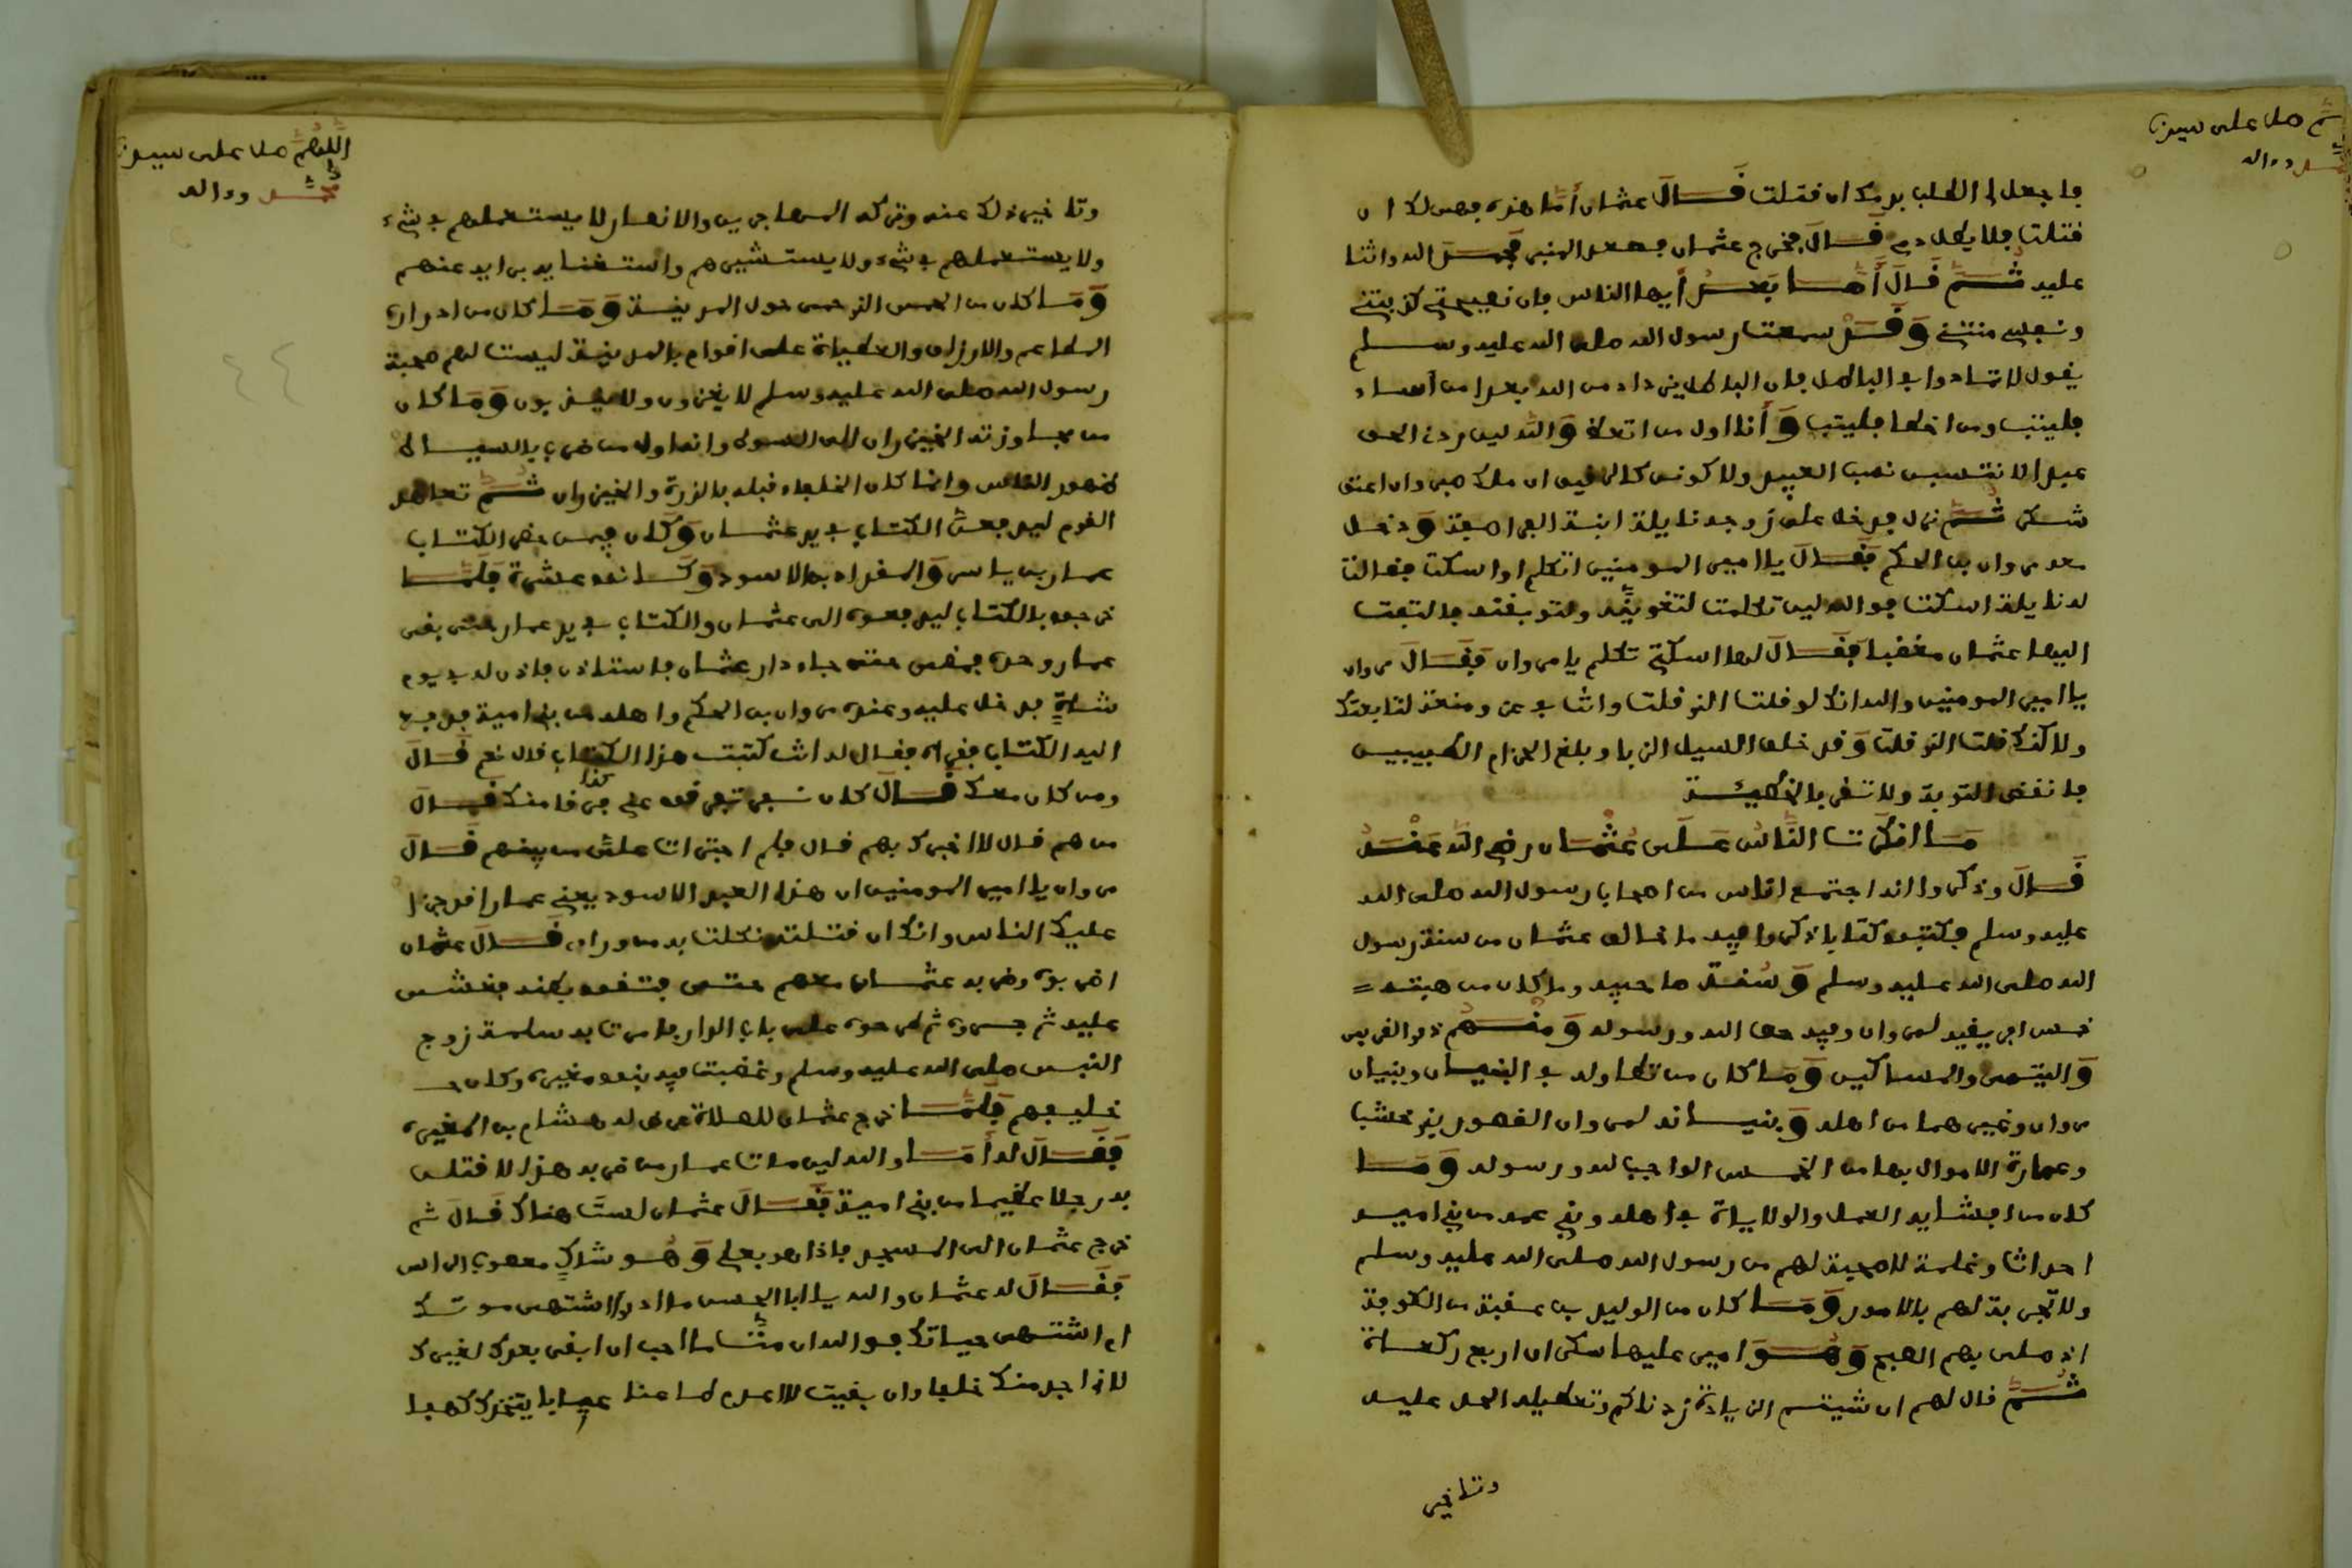 ثم صل على سيدنا
محمد وءاله
فاجعل لى الطلب بدمك ان قتلت فَقَالَ عثمان أما هذه فهى لك ان
قتلت فلا يطل دمى قَالَ فخرج عثمان فصعد المنبر فحمد الله واثنا
عليه ثُمَّ قَالَ أَمَّا بَعْدُ أيها الناس فان نصيحتى كذبتنى
ونفسى منتنى وَقَدْ سمعت رسول الله صلى الله عليه وسلم
يقول لا تتمادوا فى الباطل فان الباطل يزداد من الله بعدا من اساء
فليتب ومن اخطا فليتب وَأنا اول من اتعظ وَالله لين ردنى الحق
عبدا لانتسبن نسب العبيد ولاكونن كالرقيق ان ملك صبر وان اعتق
شكر ثُمَّ نزل فدخل على زوجه نايلة ابنة الفرافصة وَدخل
معه مروان بن الحكم فَقَالَ يا امير المومنين اتكلم او اسكت فقالت
له نايلة اسكت فوالله لين تكلمت لتغوينه ولتوبقنه فالتفت
اليها عثمان مغضبا فَقَالَ لها اسكتى تكلم يا مروان فَقَالَ مروان
يا امير المومنين والله انك لو قلت الذى قلت وانت فى عز ومنعة لتابعتك
ولاكنك قلت الذى قلت وَقد خلف السيل الزبا وبلغ الحزام الطبيين
فانقض التوبة ولا تقر بالخطيئة
مَا انكرت النَّاسُ عَلَى عُثْمَان رضى الله عَنْهُ
قَالَ وذكروا انه اجتمع اناس من اصحاب رسول الله صلى الله
عليه وسلم فكتبوه كتابا ذكروا فيه ما خالف عثمان من سنة رسول
الله صلى الله عليه وسلم وَسُنة صاحبيه وما كان من هبته
خمس افريقية لمروان وفيه حق الله ورسوله وَمنهُم ذوا القربى
وَاليتمى والمساكين وَمَا كان من تطاوله فى البنيان وبنيان
مروان وغيرهما من اهله وَبنيانه لمروان القصور بذى خشب
وعمارة الاموال بها من الخمس الواجب لله ورسوله وَمَا
كان من افشايه العمل والولاياة فى اهله وبنى عمه من بنى اميه
احداثا وغلمة لا صحبة لهم من رسول الله صلى الله عليه وسلم
ولا تجربة لهم بالامور وَمَا كان من الوليد بن عقبة من الكوفة
اذ صلى بهم الصبح وَهُوَ امير عليها سكران اربع ركعاة
ثُمَّ قال لهم ان شيتم الزيادة زدناكم وتعطيله الحد عليه
وتاخير
اللهُمَّ صل على سيدنا
محمد وءاله
وتاخير ذلك عنه وتركه المهاجرين والانصار لا يستعملهم فى شىء
ولا يستعملهم فى شىء ولا يستشيرهم واستغنا به برايه عنهم
وَمَا كان من الحمى الذى حمى حول المدينة وَمَا كان من ادرارة
المطاعم والارزاق والعطياة على اقوام بالمدينة ليست لهم صحبة
رسول الله صلى الله عليه وسلم لا يغزون ولا يذبون وَمَا كان
من مجاوزته الخيزران الى السوط وانه اول من ضرب بالسياط
ظهور الناس وانما كان الخلفاء قبله بالدرة والخيزران ثُمَّ تعاهد
القوم ليدفعن الكتاب فى يد عثمان وَكان فيمن حضر الكتاب
عمار بن ياسر وَالمقداد بن الاسود وَكانوا عشرة فَلَمَّا
خرجوا بالكتاب ليدفعوه الى عثمان والكتاب فى يد عمار حتى بقى
عمار وحده فمضى حتى جاء دار عثمان فاستاذن فاذن له فى يوم
شاةٍ فدخل عليه وعنده مروان بن الحكم واهله من بنى امية فدفع
اليه الكتاب فقراه فقال له انت كتبت هذا الكتاب قال نعم قَالَ
ومن كان معك قَالَ كان نفر تفرقوا عنى فرقا منك قَالَ
كذا
من هم قال لا اخبرك بهم قال فلم اجترات على من بينهم قَالَ
مروان يا امير المومنين ان هذا العبد الاسود يعنى عمارا قد جرا
عليك الناس وانك ان قتلته نكلت به من وراه قَالَ عثمان
اضربوه وضربه عثمان معهم حتى فتقوا بطنه فغشى
عليه ثم جروه ثم طرحوه على باب الدار فامرت ام سلمة زوج
النبى صلى الله عليه وسلم وغضبت فيه بنو مغيرة وكان
خليفهم فَلَمَّا خرج عثمان للصلاة عرض له هشام بن المغيرة
فَقَالَ له أَمَا والله لين مات عمار من ضربه هذا لا قتلن
به رجلا عظيما من بنى امية فَقَالَ عثمان لستَ هناك قَالَ ثم
خرج عثمان الى المسجد فاذا هو بعلى وَهُو شاكٍ معصوب الراس
فَقَالَ له عثمان والله يا ابا الحسن ما ادرى اشتهى موتك
ام اشتهى حياتك فوالله ان متَّ ما احب ان ابقى بعدك لغيرك
لانى لا اجد منك خلفا وان بقيت لا اعدم طاعنا عيابا يتخذك كهفا